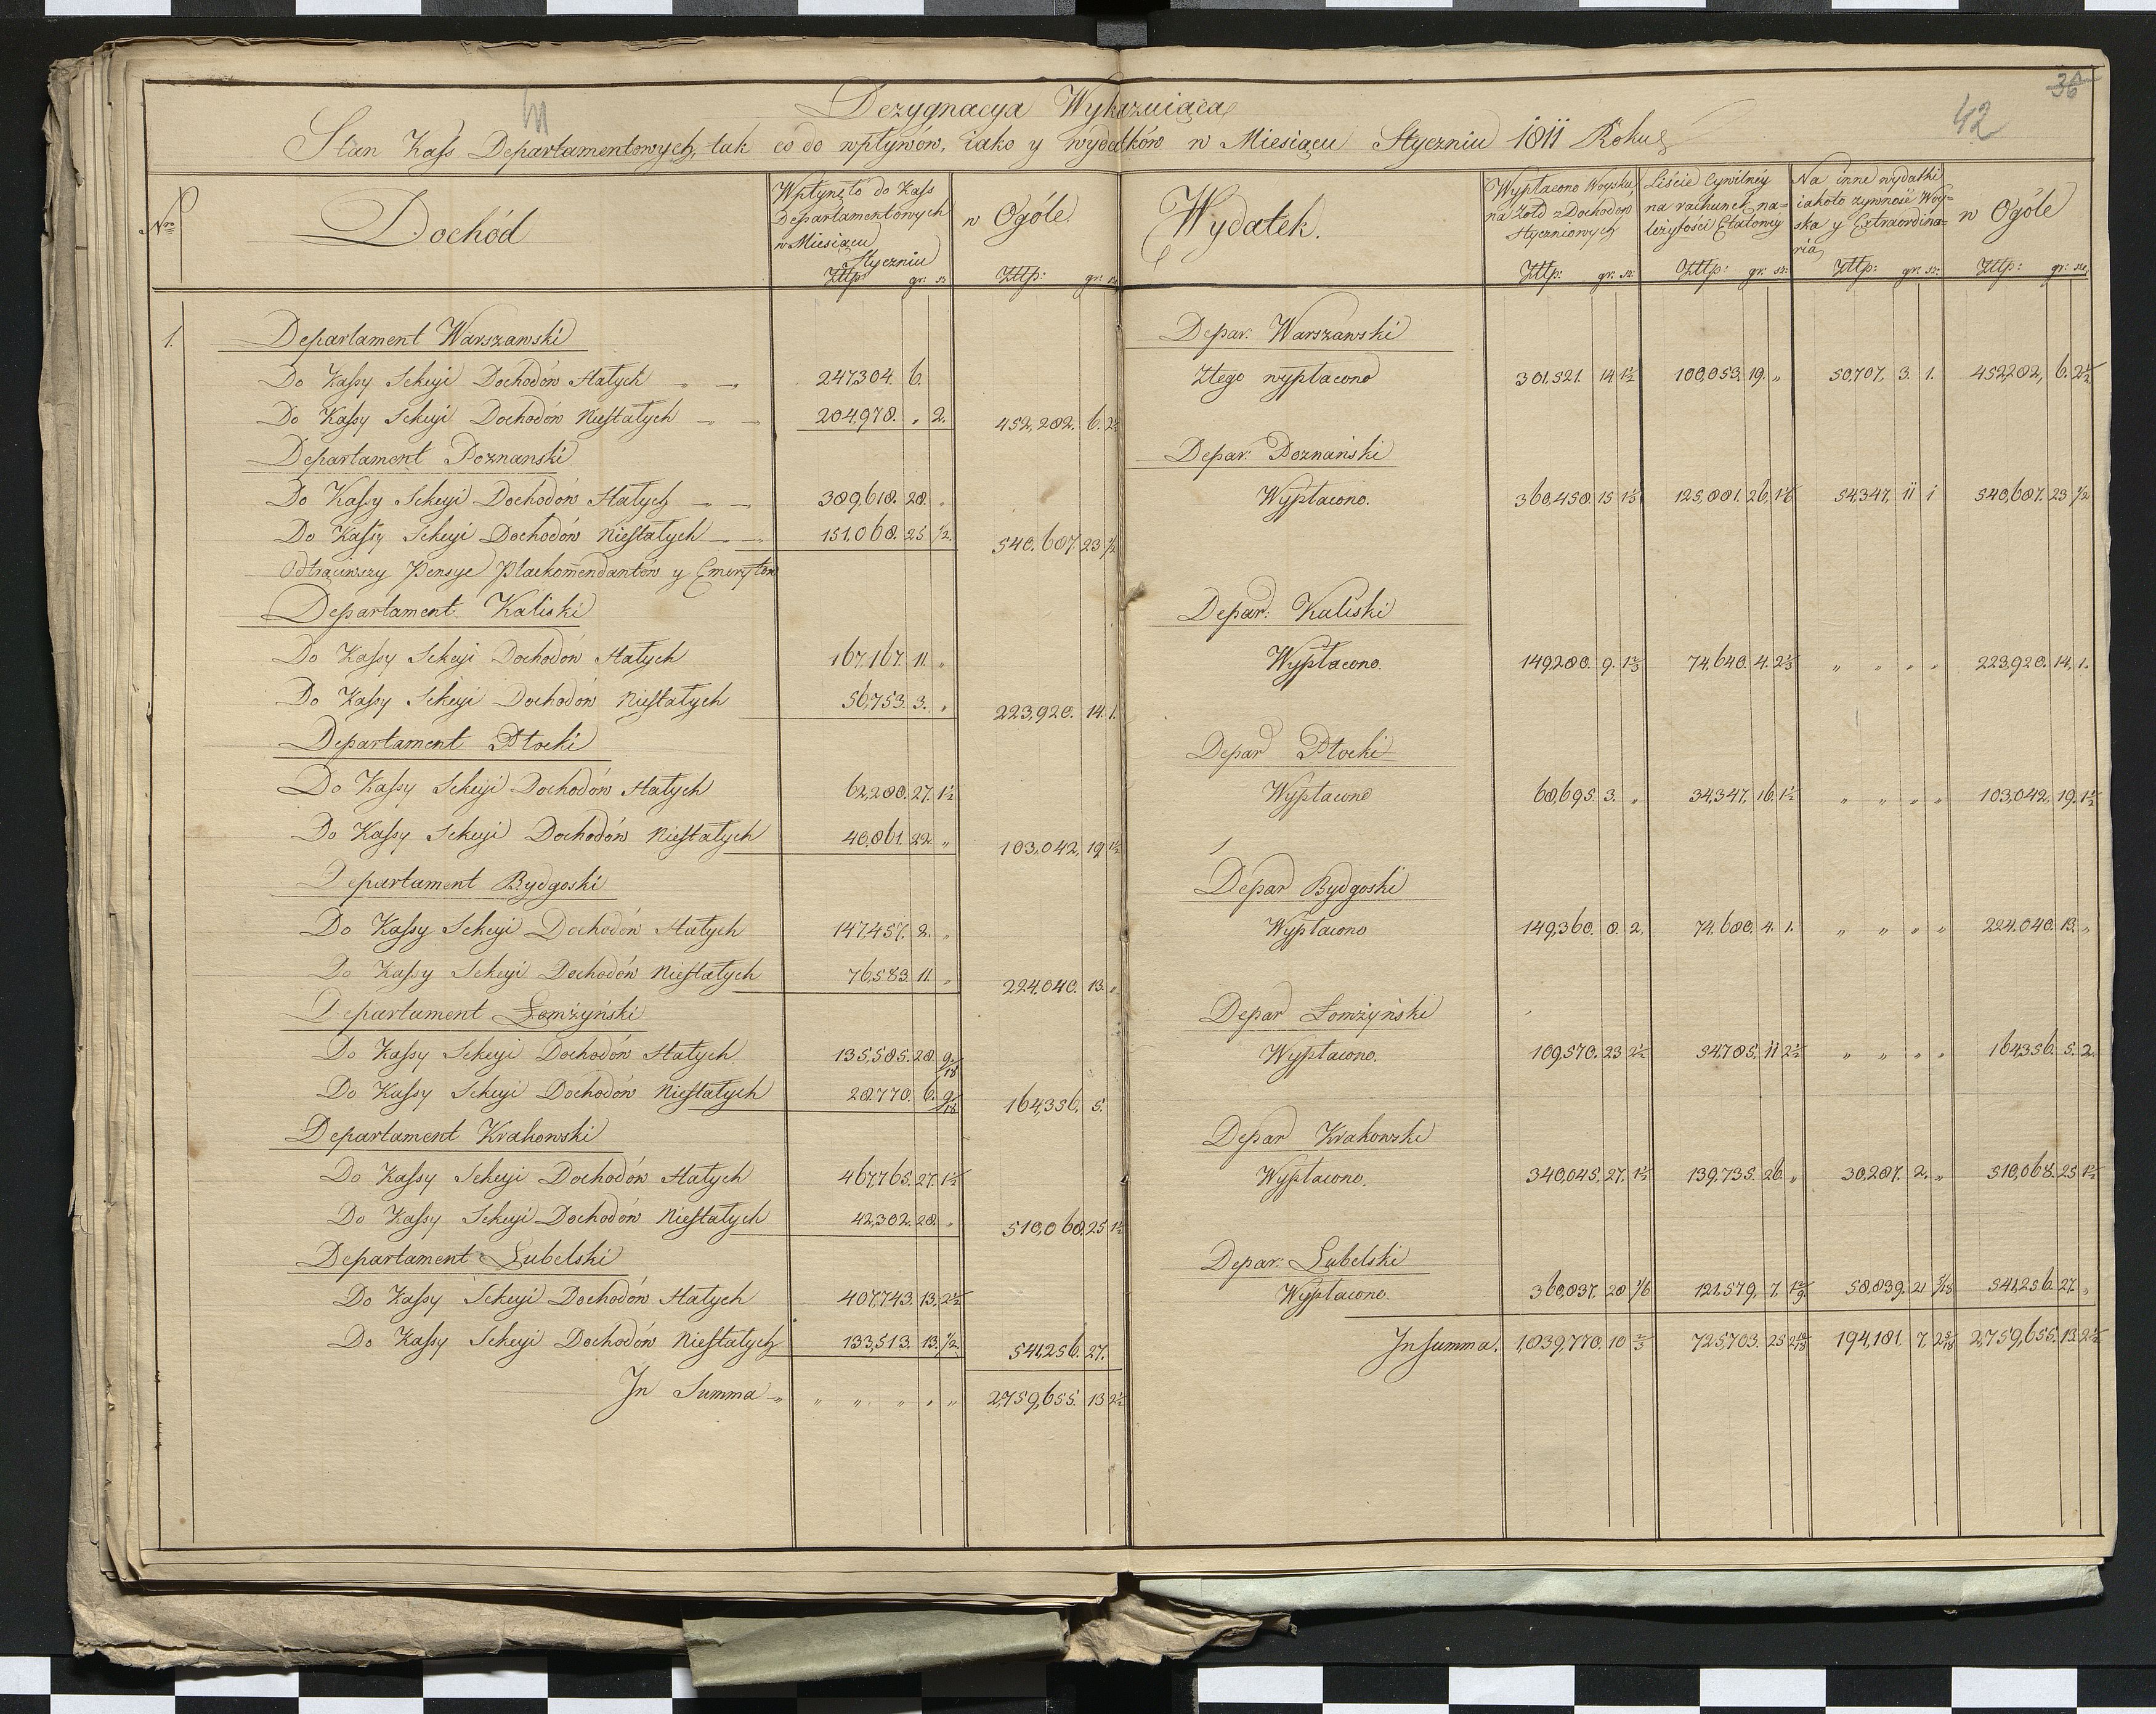 36
42
Dezygnacya Wykazuiąca
Stan Kass Departamentowych, tak co do wpływów, iako y wydatków w Miesiącu Styczniu 1811 Roku
Nro
Dochód
Wpłynęło do Kass Departamentowych w Miesiącu Styczniu
w Ogóle
Wydatek.
Wypłacono Woysku na Żołd z Dochodow Styczniowych
Liście Cywilney na rachunek należytości Etatowey
Na inne wydatki iakoto żywność Woyska y Extraordinaria
w Ogóle
Złłp: gr. sz. Złłp: gr: sz. Złłp: gr. sz. Złłp: gr. sz. Złłp: gr. sz: Złłp: gr: sze.
1. Departament Warszawski
Depar: Warszawski
Do Kassy Sekcyi Dochodów Stałych 247304. 6.
Ztego wypłacono 301.521. 14 1½ 100,053. 19. „ 50,707. 3. 1. 452,282, 6. 2½
Do Kassy Sekcyi Dochodów Niestałych 204,978. „ 2. 452,282. 6. 2½
Departament Poznanski
Depar: Poznański
Do Kassy Sekcyi Dochodów Stałych 389,618. 28. „
Wypłacono. 360,458. 15 1⅓ 125,881. 26. 1⅙ 54347. 11 1 540,687. 23 ½
Do Kassy Sekcyi Dochodów Niestałych 151.068. 25 ½. 540.687. 23 ½
Odtrąciwszy Pensye Plackommendantów y Emerytów
Departament Kaliski
Depar: Kaliski
Do Kassy Sekcyi Dochodów Stałych 167,167. 11. „
Wypłacono. 149,280. 9. 1⅔ 74,640. 4. 2⅓ „ „ „ „ 223,920. 14. 1.
Do Kassy Sekcyi Dochodów Niestałych 56,753. 3. „ 223,920. 14. 1.
Departament Płocki
Depar Płocki
Do Kassy Sekcyi Dochodów Stałych 62,280. 27. 1½
Wypłacono 68,695. 3. „ 34,347. 16. 1½ „ „ „ „ 103,042. 19. 1½
Do Kassy Sekcyi Dochodów Niestałych 40,861. 22. „ 103,042, 19 1½
Departament Bydgoski
Depar Bydgoski
Do Kassy Sekcyi Dochodów Stałych 147,457. 2. „
Wypłacono 149,360. 8. 2. 74.680. 4. 1. „ „ „ „ 224.040. 13. „
Do Kassy Sekcyi Dochodów Niestałych 76,583. 11. „ 224,040. 13. „
Departament Łomżyński
Depar Łomżyński
Do Kassy Sekcyi Dochodów Stałych 135,585. 28. 9/18
Wypłacono. 109,570. 23 2½ 54,785. 11 2½ „ „ „ „ 164,356. 5. 2.
Do Kassy Sekcyi Dochodów Niestałych 28.770. 6. 9/18 164,356. 5.
Departament Krakowski
Depar Krakowski
Do Kassy Sekcyi Dochodów Stałych 467,765. 27. 1½
Wypłacono. 340,045. 27. 1½ 139,735. 26. „ 30,287. 2. „ 510,068. 25 1½
Do Kassy Sekcyi Dochodów Niestałych 42,302. 28. „ 510,068. 25 1½
Departament Lubelski
Depar: Lubelski
Do Kassy Sekcyi Dochodów Stałych 407,743. 13. 2½
Wypłacono. 360,837. 28 1/6 121.579. 7. 1 2/9 58,839. 21 5/18 541,256. 27. „
Do Kassy Sekcyi Dochodów Niestałych 133,513. 13. ½. 541,256. 27.
In Summa. 1,839,770. 10 ⅔ 725,703. 25 194,181. 7. 2 5/18 2,759,655. 13. 2½
In Summa „ „ „ „ „ „ 2,759,655. 13 2½